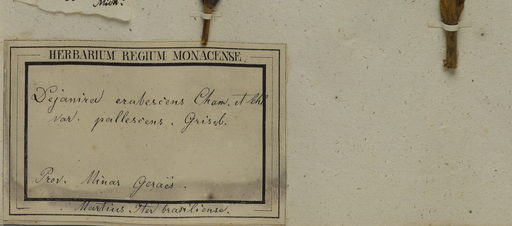 Mich.
HERBARIUM REGIUM MONACENSE.
Dejanira erubescens Cham. et Schl
var. pallescens. Griseb.
Prov. Minas Geraës.
Martius. Iter brasiliense.